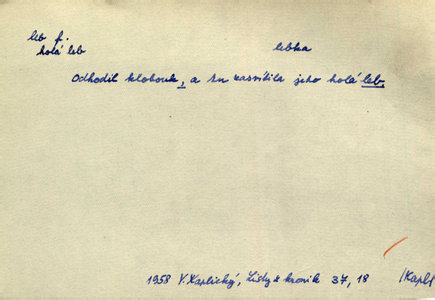 leb f. lebka
holá leb
Odhodil klobouk, a tu zasvítila jeho holá leb.
1958 V. Kaplický, Listy z kronik 37, 18 /Kapl/